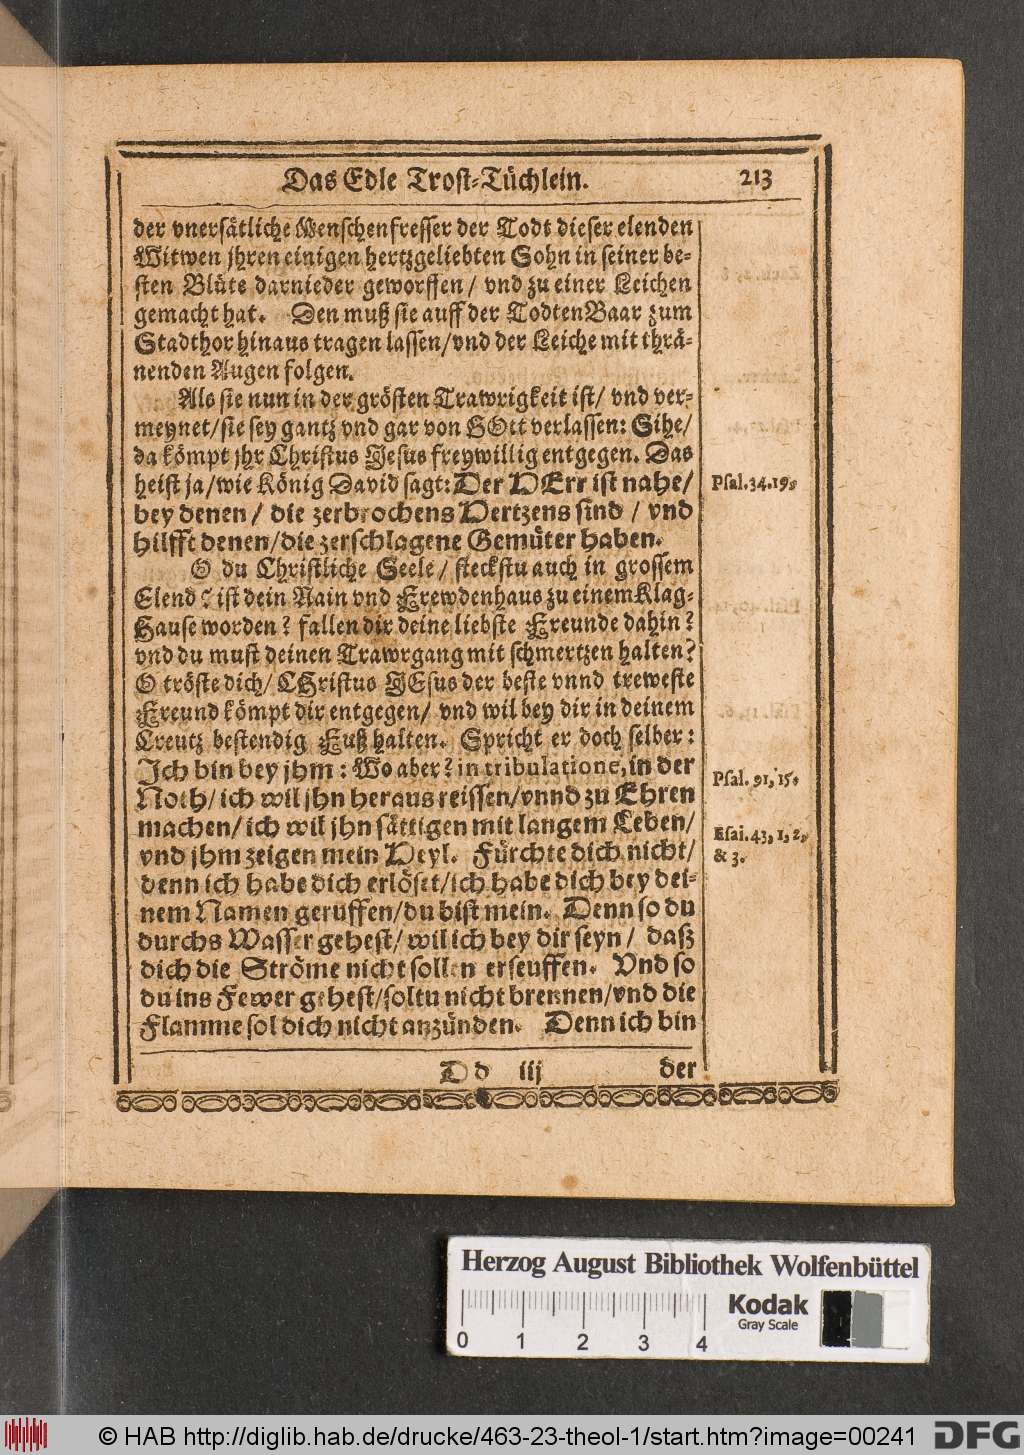 Das Edle Trost-Tüchlein. 213
der vnersätliche Menschenfresser der Todt dieser elenden
Witwen jhren einigen hertzgeliebten Sohn in seiner be-
sten Blüte darnieder geworffen/ vnd zu einer Leichen
gemacht hat. Den muß sie auff der TodtenBaar zum
Stadthor hinaus tragen lassen/vnd der Leiche mit thrä-
nenden Augen folgen.
Als sie nun in der grösten Trawrigkeit ist/ vnd ver-
meynet/sie sey gantz vnd gar von GOtt verlassen: Sihe/
da kömpt jhr Christus Jesus freywillig entgegen. Das
heist ja/wie König David sagt: Der HErr ist nahe/
Psal.34.19.
bey denen/ die zerbrochens Hertzens sind/ vnd
hilfft denen/die zerschlagene Gemüter haben.
O du Christliche Seele/ steckstu auch in grossem
Elend? ist dein Nain vnd Frewdenhaus zu einem Klag-
Hause worden? fallen dir deine liebste Freunde dahin?
vnd du must deinen Trawrgang mit schmertzen halten?
O tröste dich/ CHristus JEsus der beste vnnd treweste
Freund kömpt dir entgegen/ vnd wil bey dir in deinem
Creutz bestendig Fuß halten. Spricht er doch selber:
Ich bin bey jhm: Wo aber? in tribulatione, in der
Psal. 91, 15.
Noth/ ich wil jhn heraus reissen/vnnd zu Ehren
machen/ ich wil jhn sättigen mit langem Leben/
Esai. 43, 1, 2,
& 3.
vnd jhm zeigen mein Heyl. Fürchte dich nicht/
denn ich habe dich erlöset/ich habe dich bey dei-
nem Namen geruffen/du bist mein. Denn so du
durchs Wasser gehest/ wil ich bey dir seyn/ daß
dich die Ströme nicht sollen erseuffen. Vnd so
du ins Fewer gehest/soltu nicht brennen/vnd die
Flamme sol dich nicht anzünden. Denn ich bin
D d iij der
Herzog August Bibliothek Wolfenbüttel
Kodak
Gray Scale
0 1 2 3 4
© HAB http://diglib.hab.de/drucke/463-23-theol-1/start.htm?image=00241 DFG